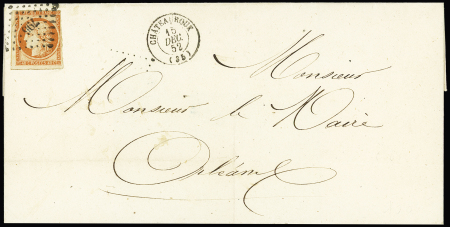 CHATEAUROUX
15
DEC.
52
(35)
Monsieur
Monsieur le Maire
Orléans